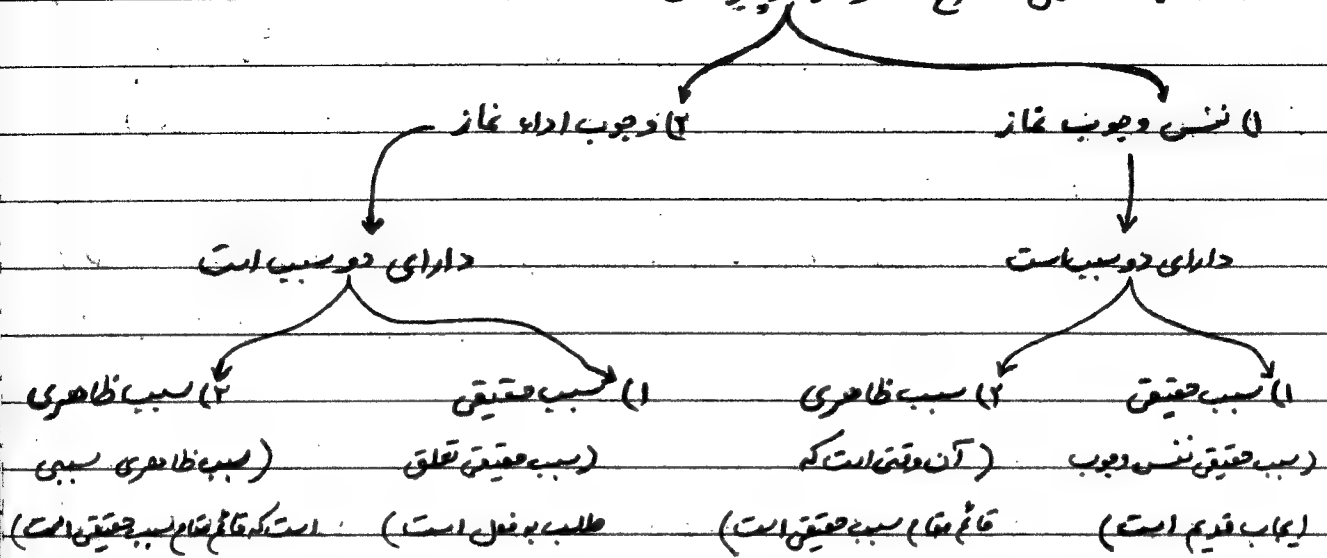 ۱) نفس وجوب نماز
۲) وجوب اداء نماز
دارای دو سبب است
دارای دو سبب است
۱) سبب حقیقی
(سبب حقیقی نفس وجوب
ایجاب قدیم است)
۲) سبب ظاهری
(آن وقتی است که
قائم مقام سبب حقیقی است)
۱) سبب حقیقی
(سبب حقیقی تعلق
طلب به فعل است)
۲) سبب ظاهری
(سبب ظاهری سببی
است که قائم مقام سبب حقیقی است)